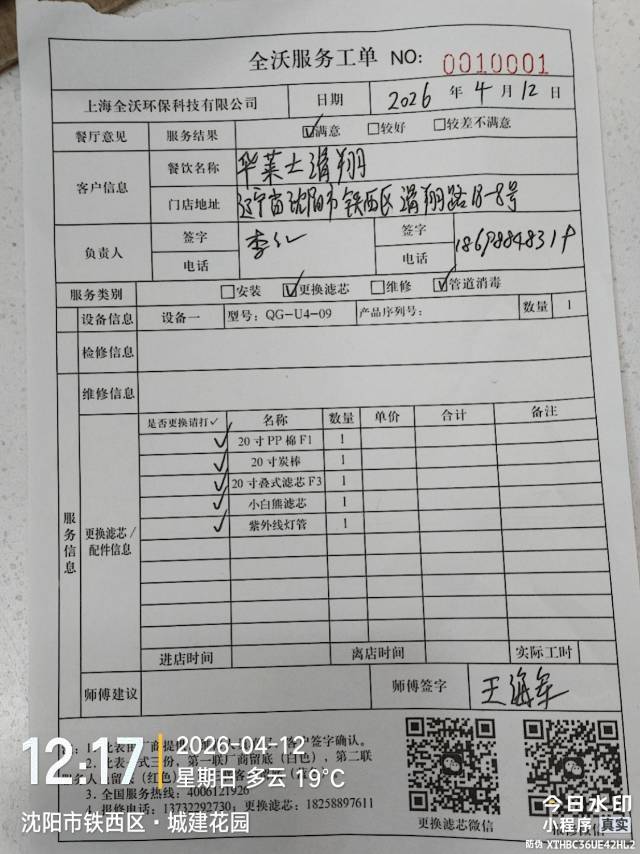 全沃服务工单 NO: 0010001
上海全沃环保科技有限公司 日期 2026 年 4 月 12 日
餐厅意见 服务结果 ☑满意 □较好 □较差不满意
客户信息 餐饮名称 华莱士滑翔
门店地址 辽宁省沈阳市铁西区滑翔路18-8号
负责人 签字 签字
电话 电话
服务类别 □安装 ☑更换滤芯 □维修 ☑管道消毒
设备信息 设备一 型号: QG-U4-09 产品序列号: 数量 1
检修信息
维修信息
服务信息
更换滤芯/配件信息
是否更换请打✓ 名称 数量 单价 合计 备注
✓ 20寸PP棉F1 1
✓ 20寸炭棒 1
✓ 20寸叠式滤芯F3 1
✓ 小白熊滤芯 1
✓ 紫外线灯管 1
进店时间 离店时间 实际工时
师傅建议 师傅签字 王海军
客户签字确认。
第一联厂商留底(白色),第二联
3. 全国服务热线: 4006121926
4. 报修电话: 13732292730; 更换滤芯: 18258897611
更换滤芯微信
12:17
2026-04-12
星期日 多云 19℃
沈阳市铁西区·城建花园
今日水印
小程序 真实
防伪 XTHBC36UE42HL2